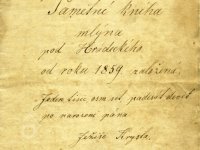 Pamětní kniha
mlýna
pod Hrádeckého
od roku 1859 založena.
Jeden tisíc osm set padesát devět
po narození pána
Ježíše Krysta.